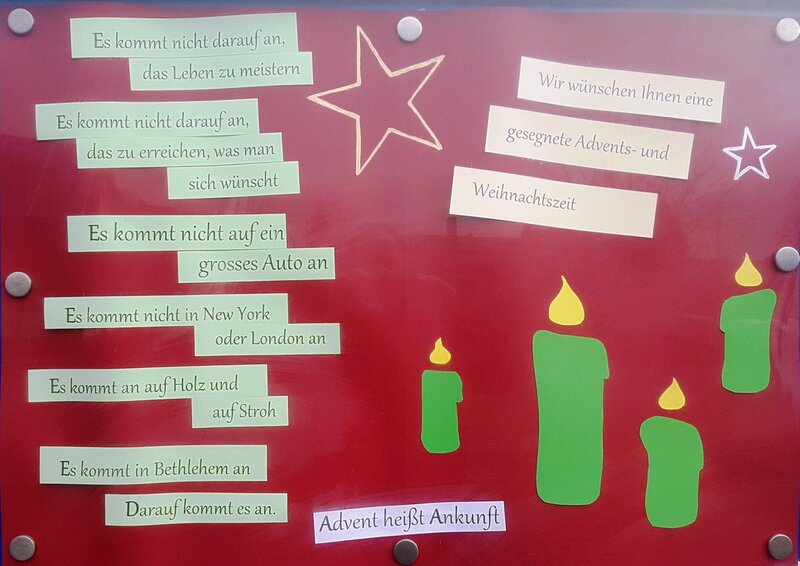 Es kommt nicht darauf an,
das Leben zu meistern
Es kommt nicht darauf an,
das zu erreichen, was man
sich wünscht
Es kommt nicht auf ein
grosses Auto an
Es kommt nicht in New York
oder London an
Es kommt an auf Holz und
auf Stroh
Es kommt in Bethlehem an
Darauf kommt es an.
Wir wünschen Ihnen eine
gesegnete Advents- und
Weihnachtszeit
Advent heißt Ankunft